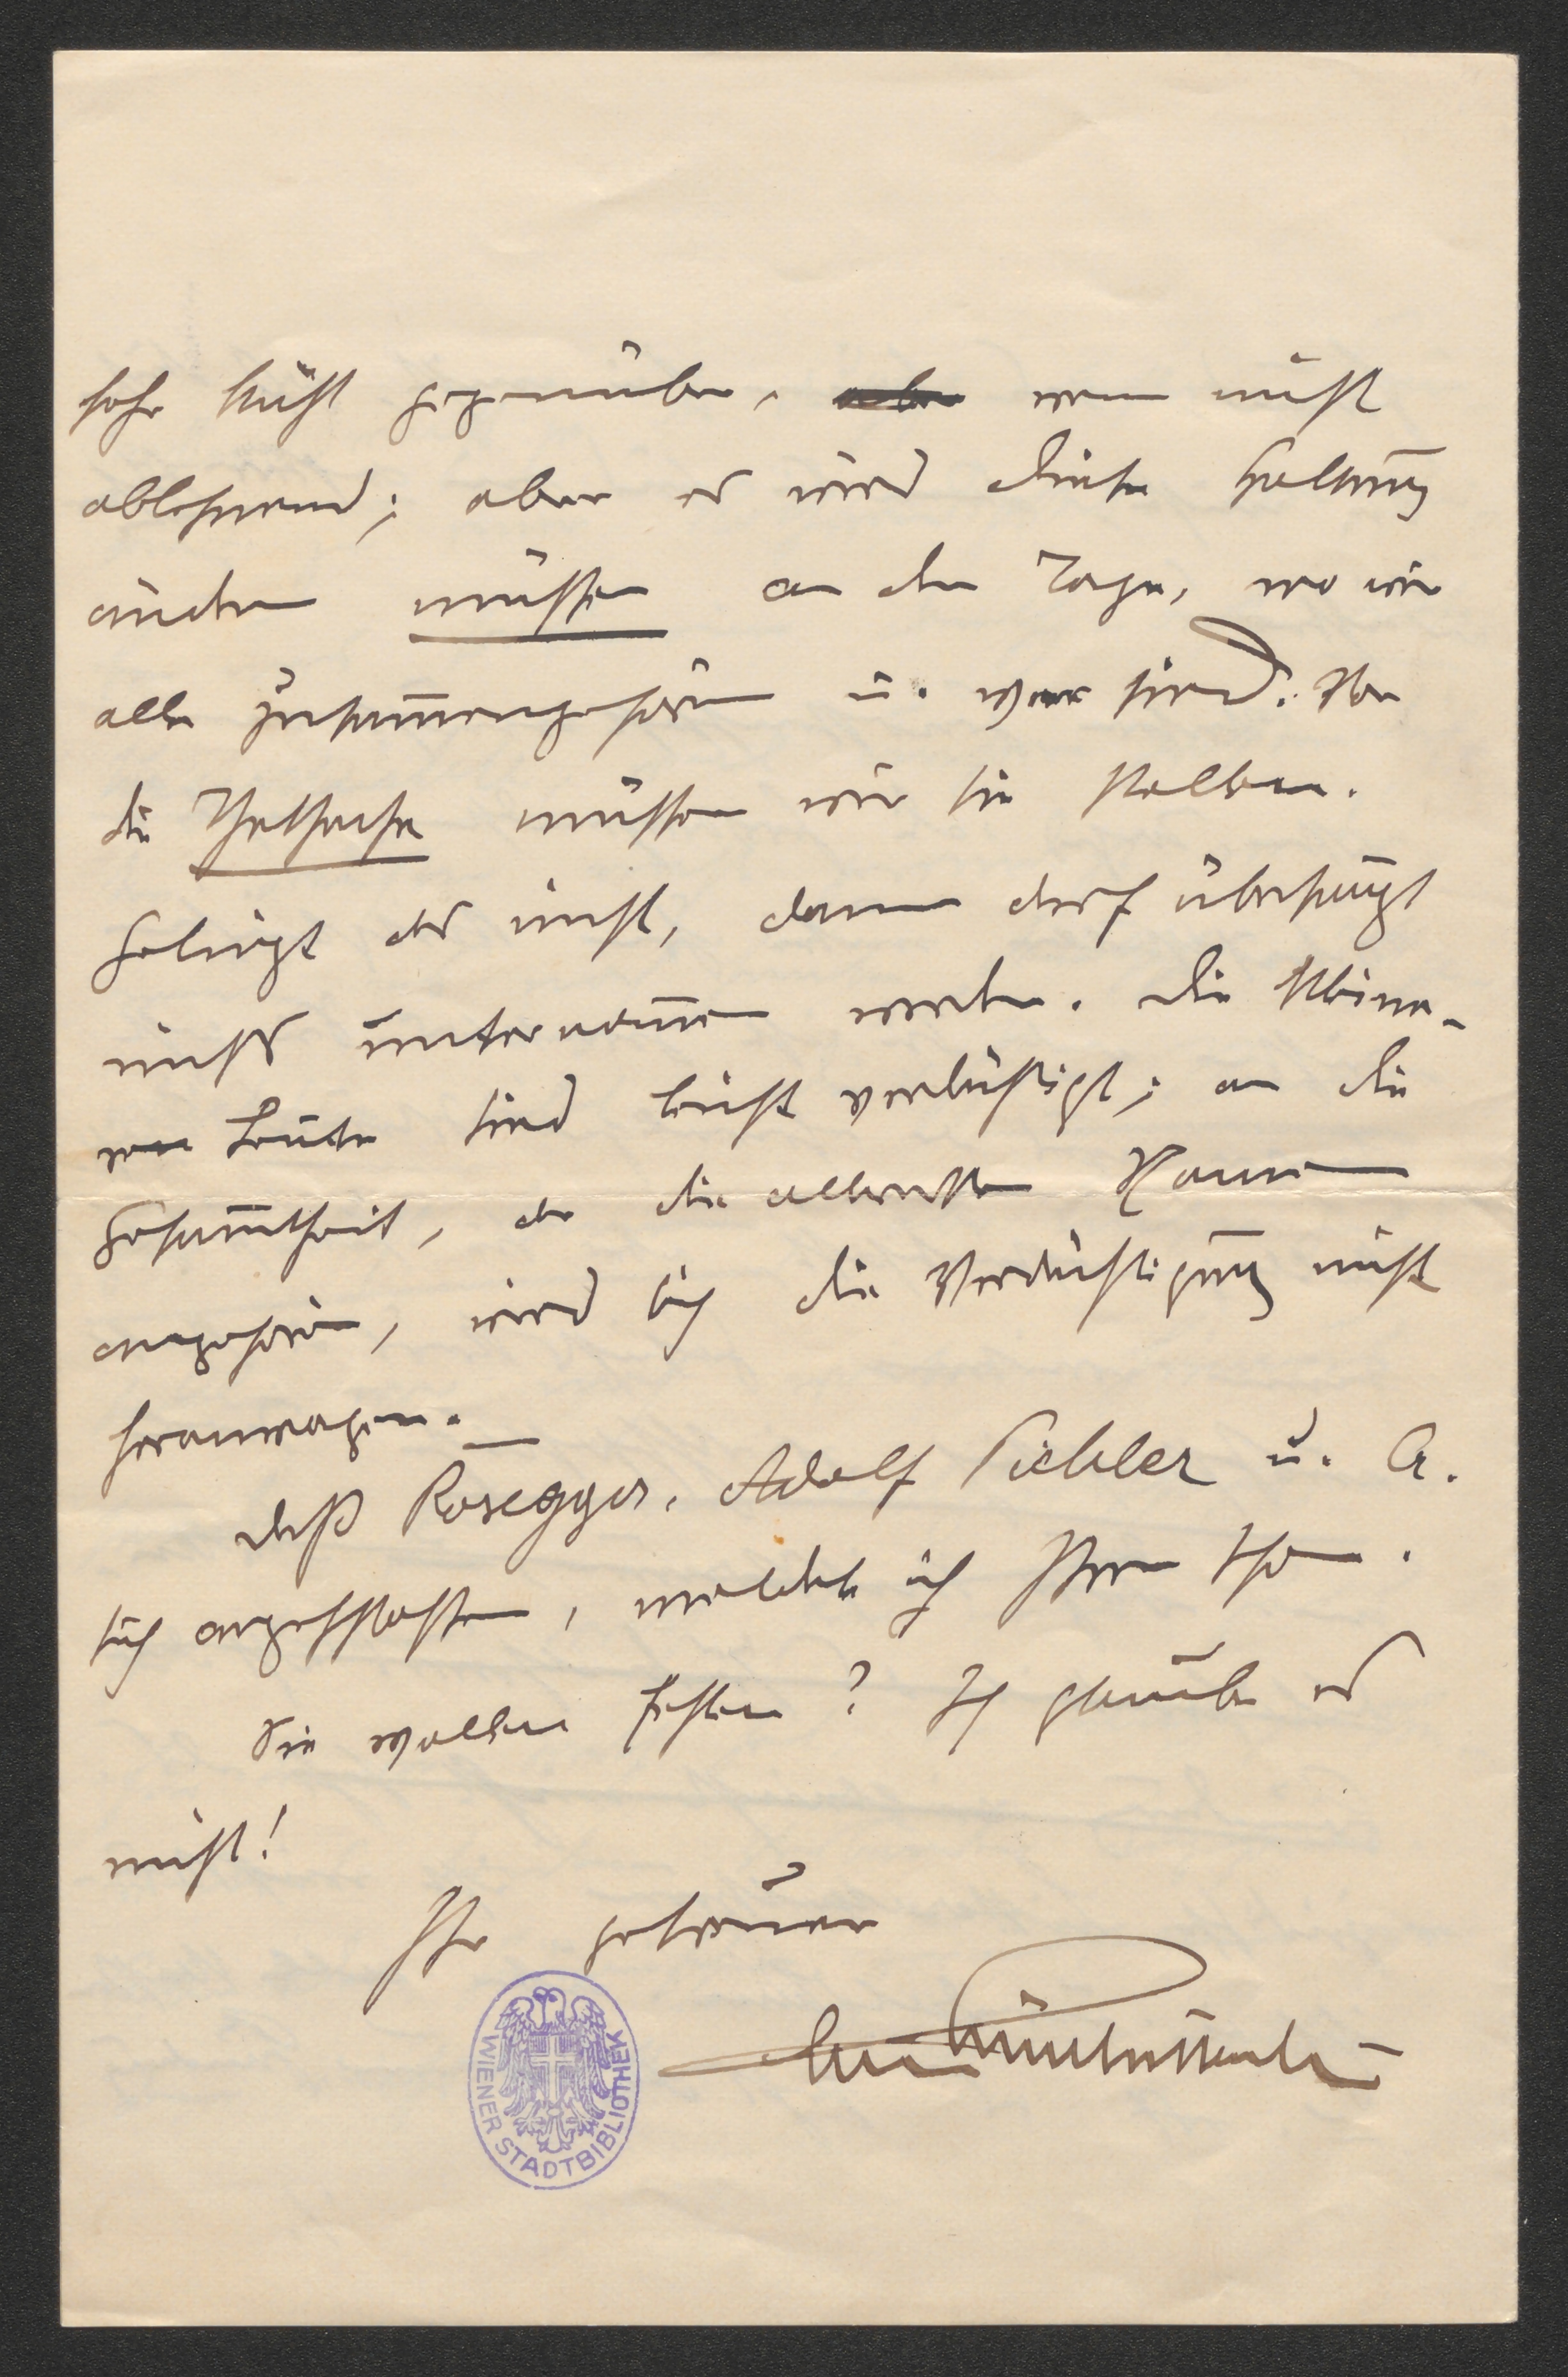 sehr kühl gegenüber, aber wenn nicht
ablehnend; aber es wird diese Haltung
ändern müssen an dem Tage, wo wir
alle zusammengehören u. wer sind. Vor
die Thatsache müssen wir sie stellen.
Gelingt das nicht, dann darf überhaupt
nichts unternommen werden. Die kleine-
ren Leute sind leicht verdächtigt; an die
Gesammtheit, der die allerersten Namen
angehören, wird sich die Verdächtigung nicht
heranwagen. —
Daß Rosegger, Adolf Pichler u. A.
sich angeschlossen, meldete ich Ihnen schon.
Sie wollen fehlen? Ich glaube es
nicht!
Ihr getreuer
WIENER STADTBIBLIOTHEK